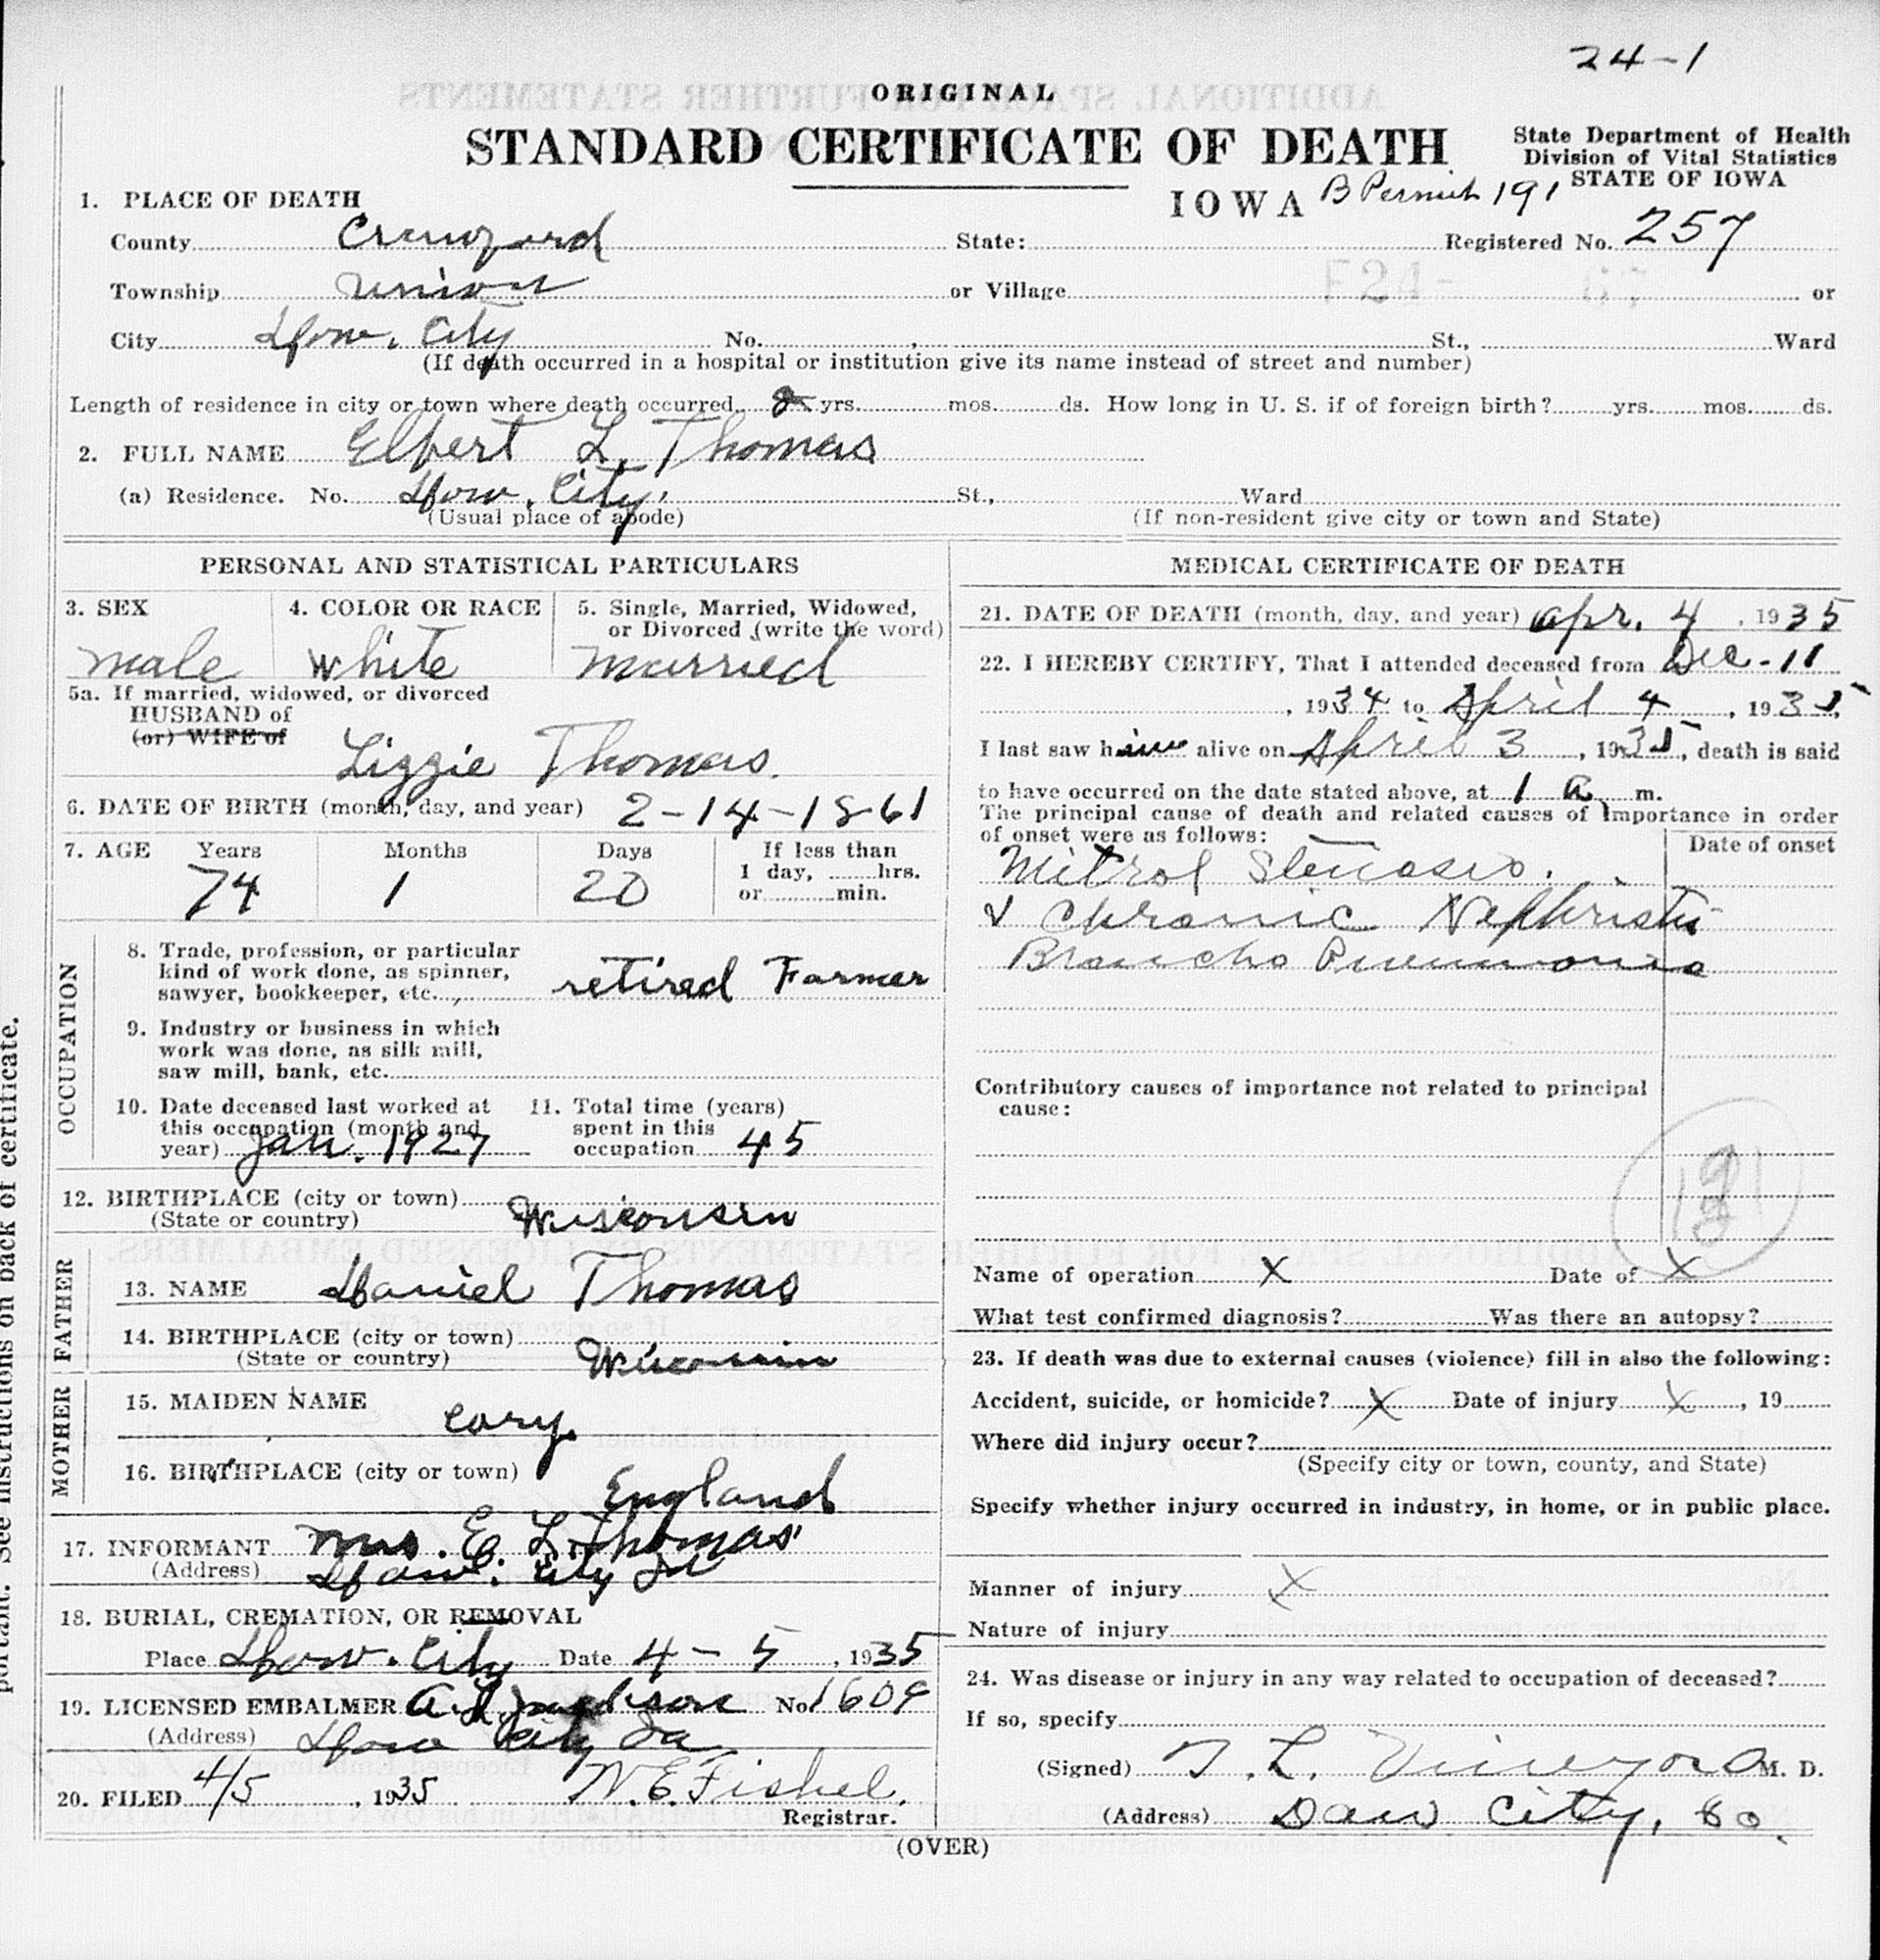 24-1
ORIGINAL
STANDARD CERTIFICATE OF DEATH
State Department of Health
Division of Vital Statistics
STATE OF IOWA
IOWA B Permit 191
1. PLACE OF DEATH
County Crawford State: Registered No. 257
Township Union or Village or
F24- 67
City Dow. City No. , St., Ward
(If death occurred in a hospital or institution give its name instead of street and number)
Length of residence in city or town where death occurred yrs. mos. ds. How long in U. S. if of foreign birth? yrs. mos. ds.
2. FULL NAME Elbert L. Thomas
(a) Residence. No. Dow. City. St., Ward
(Usual place of abode) (If non-resident give city or town and State)
PERSONAL AND STATISTICAL PARTICULARS
3. SEX 4. COLOR OR RACE 5. Single, Married, Widowed,
or Divorced (write the word)
male white married
5a. If married, widowed, or divorced
HUSBAND of
(or) WIFE of
Lizzie Thomas.
6. DATE OF BIRTH (month, day, and year) 2-14-1861
7. AGE Years Months Days If less than
1 day, hrs.
or min.
74 1 20
OCCUPATION
8. Trade, profession, or particular
kind of work done, as spinner,
sawyer, bookkeeper, etc. retired Farmer
9. Industry or business in which
work was done, as silk mill,
saw mill, bank, etc.
10. Date deceased last worked at
this occupation (month and
year) Jan. 1927
11. Total time (years)
spent in this
occupation 45
12. BIRTHPLACE (city or town)
(State or country) Wisconsin
FATHER
13. NAME Daniel Thomas
14. BIRTHPLACE (city or town)
(State or country) Wisconsin
MOTHER
15. MAIDEN NAME
Cory.
16. BIRTHPLACE (city or town)
England
17. INFORMANT Mrs. E. L. Thomas
(Address) Dow. City Ia
18. BURIAL, CREMATION, OR REMOVAL
Place Dow. City Date 4-5, 1935
19. LICENSED EMBALMER A. L. No. 1609
(Address) Dow City Ia
20. FILED 4/5, 1935 W. E. Fishel.
Registrar.
MEDICAL CERTIFICATE OF DEATH
21. DATE OF DEATH (month, day, and year) Apr. 4, 1935
22. I HEREBY CERTIFY, That I attended deceased from Dec-11
, 1934 to April 4, 1935
I last saw him alive on April 3, 1935, death is said
to have occurred on the date stated above, at 1 a m.
The principal cause of death and related causes of importance in order
of onset were as follows:
Date of onset
Mitrol Stenosis.
& Chronic Nephritis
Broncho Pneumonia
Contributory causes of importance not related to principal
cause:
Name of operation X Date of X
What test confirmed diagnosis? Was there an autopsy?
23. If death was due to external causes (violence) fill in also the following:
Accident, suicide, or homicide? X Date of injury X, 19
Where did injury occur?
(Specify city or town, county, and State)
Specify whether injury occurred in industry, in home, or in public place.
Manner of injury X
Nature of injury
24. Was disease or injury in any way related to occupation of deceased?
If so, specify
(Signed) T. L. Vineyard M. D.
(Address) Dow City, Io.
(OVER)
portant. See instructions on back of certificate.